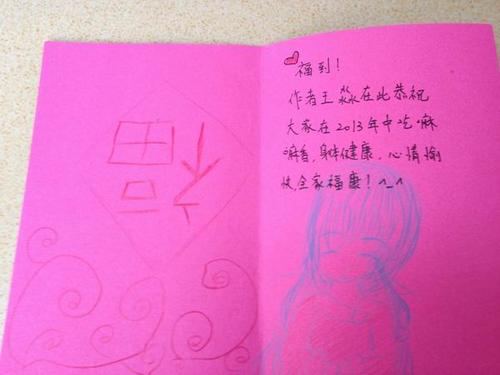 福
福到！
作者王淼在此恭祝
大家在2013年中吃嘛
嘛香，身体健康，心情愉
快，全家福康！^_^